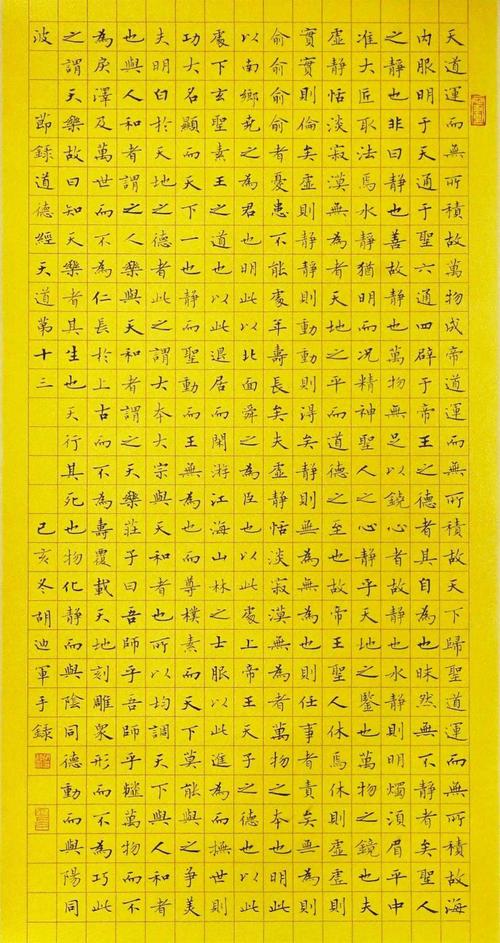 天道運而無所積故萬物成帝道運而無所積故天下歸聖道運而無所積故海
內服明于天通于聖六通四辟于帝王之德者其自為也昧然無不靜者矣聖人
之靜也非曰靜也善故靜也萬物無足以鐃心者故靜也水靜則明燭須眉平中
准大匠取法焉水靜猶明而況精神聖人之心靜乎天地之鑒也萬物之鏡也夫
虛靜恬淡寂漠無為者天地之平而道德之至也故帝王聖人休焉休則虛虛則
實實則倫矣虛則靜靜則動動則得矣靜則無為無為也則任事者責矣無為則
俞俞俞俞者憂患不能處年壽長矣夫虛靜恬淡寂漠無為者萬物之本也明此
以南鄉堯之為君也明此以北面舜之為臣也以此處上帝王天子之德也以此
處下玄聖素王之道也以此退居而閑游江海山林之士服以此進為而撫世則
功大名顯而天下一也靜而聖動而王無為也而尊樸素而天下莫能與之爭美
夫明白於天地之德者此之謂大本大宗與天和者也所以均調天下與人和者
也與人和者謂之人樂與天和者謂之天樂莊子曰吾師乎吾師乎萬物而不
為戾澤及萬世而不為仁長於上古而不為壽覆載天地刻雕眾形而不為巧此
之謂天樂故曰知天樂者其生也天行其死也物化靜而與陰同德動而與陽同
波 節錄道德經天道第十三 己亥冬胡迪軍手錄